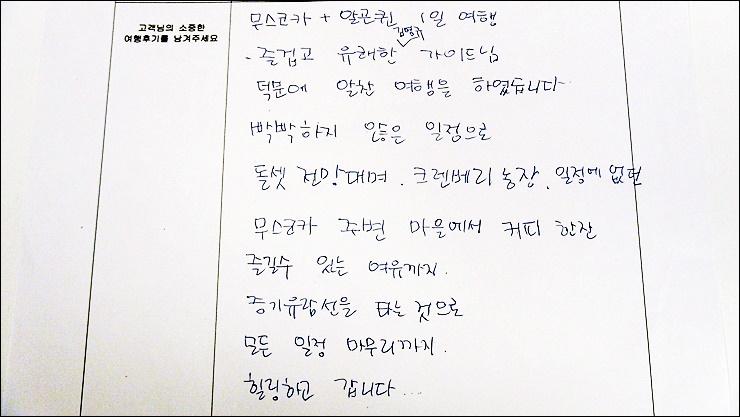 고객님의 소중한
여행후기를 남겨주세요
무스코카 + 알곤퀸 1일 여행
. 즐겁고 유쾌한 가이드님
덕분에 알찬 여행을 하였습니다
빡빡하지 않은 일정으로
돌셋 전망대며. 크렌베리 농장. 일정에 없던
무스코카 주변 마을에서 커피 한잔
즐길수 있는 여유까지.
증기유람선을 타는 것으로
모든 일정 마무리까지.
힐링하고 갑니다...